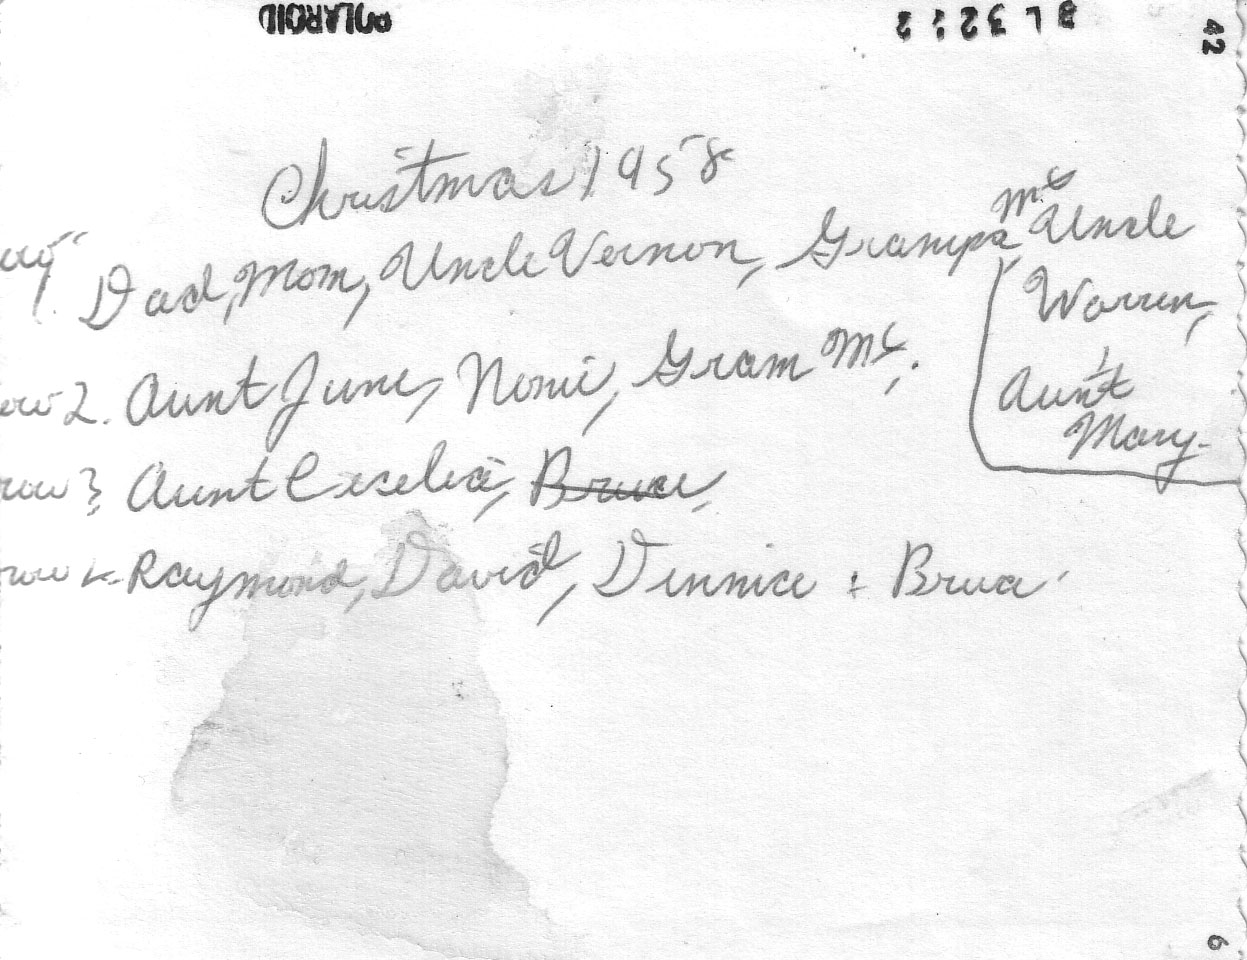 POLAROID
42
Christmas 1958
Dad, Mom, Uncle Vernon, Grampa Mc, Uncle
Warren,
Aunt
Mary-
row 2. Aunt June, Nonie, Gram Mc.
row 3 Aunt Cecelia, Bruce,
row 4- Raymond, David, Dennice & Bruce
6